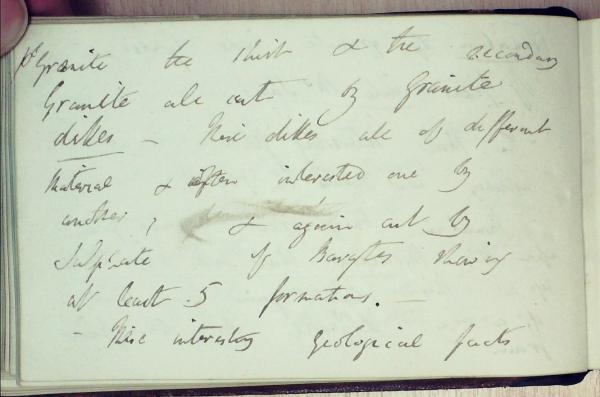 Granite the schist & the secondary
Granite are cut by granite
dikes – These dikes are of different
material & often intersected one by
another, & again cut by
Sulphate of Barytes showing
at least 5 formations. –
– These interesting geological facts